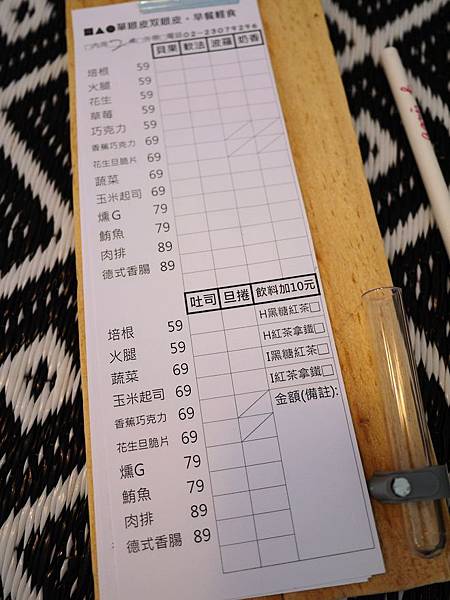 ■▲●單眼皮双眼皮・早餐輕食
□內用 □外帶□電話02-23079296
貝果 軟法 波蘿 奶香
培根 59
火腿 59
花生 59
草莓 59
巧克力 59
香蕉巧克力 69
花生旦脆片 69
蔬菜 69
玉米起司 69
燻G 79
鮪魚 79
肉排 89
德式香腸 89
吐司 旦捲 飲料加10元
培根 59
火腿 59
蔬菜 69
玉米起司 69
香蕉巧克力 69
花生旦脆片 69
燻G 79
鮪魚 79
肉排 89
德式香腸 89
H黑糖紅茶□
H紅茶拿鐵□
I黑糖紅茶□
I紅茶拿鐵□
金額(備註):